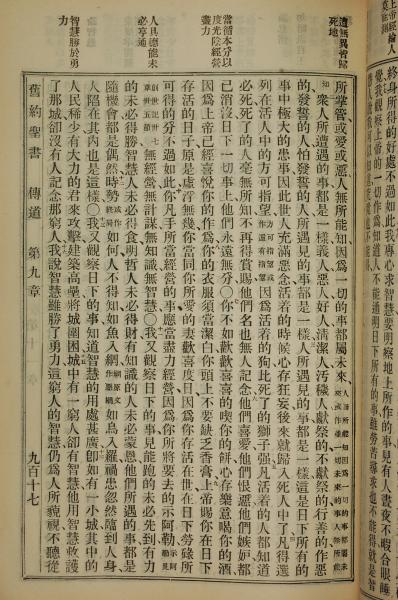 終身所得的好處不過如此我專心求智慧要明察地上所作的事見有人晝夜不暇合眼睡
所掌管或愛或惡人無所能知因爲一切的事都屬未來
衆人所遭遇的事都是一樣義人惡人好人清潔人污穢人獻祭的不獻祭的行善的作惡
的發誓的人怕發誓的人所遇見的事都是一樣人所遇見的事都是一樣這是日下所有的
事中極大的患事因此世人充滿惡念活着的時候心存狂妄後來就歸入死人中了凡得選
列在活人中的方可指望
因爲活着的狗比死了的獅子強凡活着的人都知道
必死死了的人毫無所知不再得賞賜他們名也無人記念他們喜愛他們恨惡他們嫉妒都
已消沒日下一切事上他們永遠無分○你不如歡歡喜喜的喫你的餅心存樂意喝你的酒
因爲上帝已經喜悅你的作爲你的衣服須當潔白你頭上不要缺乏香膏上帝賜你在日下
存活的日子原是虛浮無幾你當同你所愛的妻歡喜度日因爲你存活在世在日下勞碌所
可得的分不過如此你凡手所當經營的事應當盡力經營因爲你所將要去的示阿勒
無經營無計謀無知識無智慧○我又觀察日下的事見能跑的未必先到有力
的未必得勝智慧人未必得食明哲人未必得財有知識的人未必蒙恩他們所遇的事都是
隨機會都是偶然時勢
如何人不得知如魚入網
如鳥入羅禍患忽然臨到人身
人陷在其內也是這樣○我又觀察日下的事知道智慧的用處甚廣卽如有一小城其中的
人民稀少有大力的君來攻擊建築高壘將城圍困城中有一窮人卻有智慧他用智慧救護
了那城卻沒有人記念那窮人我說智慧雖勝了勇力這窮人的智慧仍爲人所藐視不聽從
舊約聖書 傳道 第九章 九百十七
遭無異皆歸
死地
當循本分以
度光陰經營
盡力
人具德能未
必亨通
智慧勝於勇
力